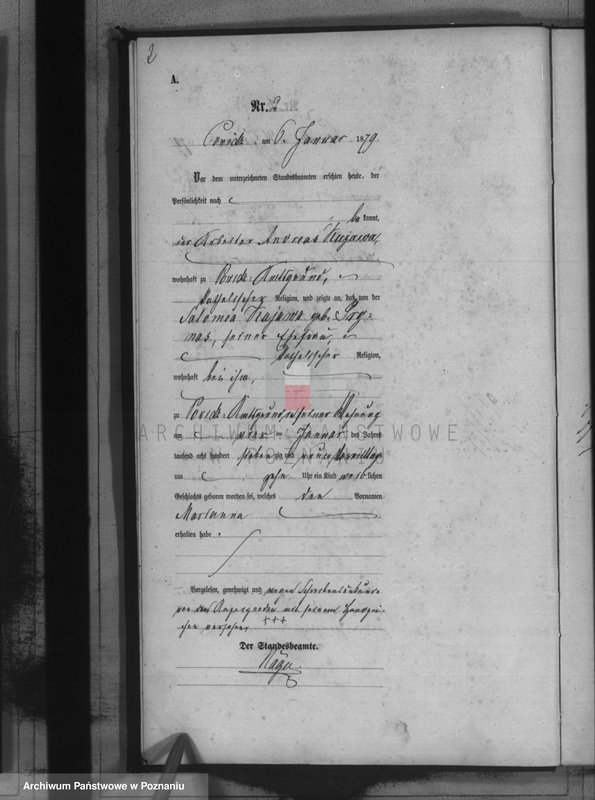 2
A.
Nr. 2.
am 6. Januar 1879.
Vor dem unterzeichneten Standesbeamten erschien heute, der
Persönlichkeit nach
be kannt,
der Arbeiter Andreas Kujawa,
wohnhaft zu Amtsgrund,
katholischer Religion, und zeigte an, daß von der
Salomea Kujawa geb.
seiner Ehefrau,
katholischer Religion,
wohnhaft bei ihm,
zu Amtsgrund in seiner Wohnung
am Januar des Jahres
tausend acht hundert sieben zig und neun Vormittags
um zehn Uhr ein Kind weib lichen
Geschlechts geboren worden sei, welches den Vornamen
Marianna
erhalten habe.
Vorgelesen, genehmigt und wegen Schreibensunkunde
von dem Anzeigenden mit seinem Handzei-
chen versehen
+++
Der Standesbeamte.
ARCHIWUM PAŃSTWOWE
W POZNANIU
Archiwum Państwowe w Poznaniu